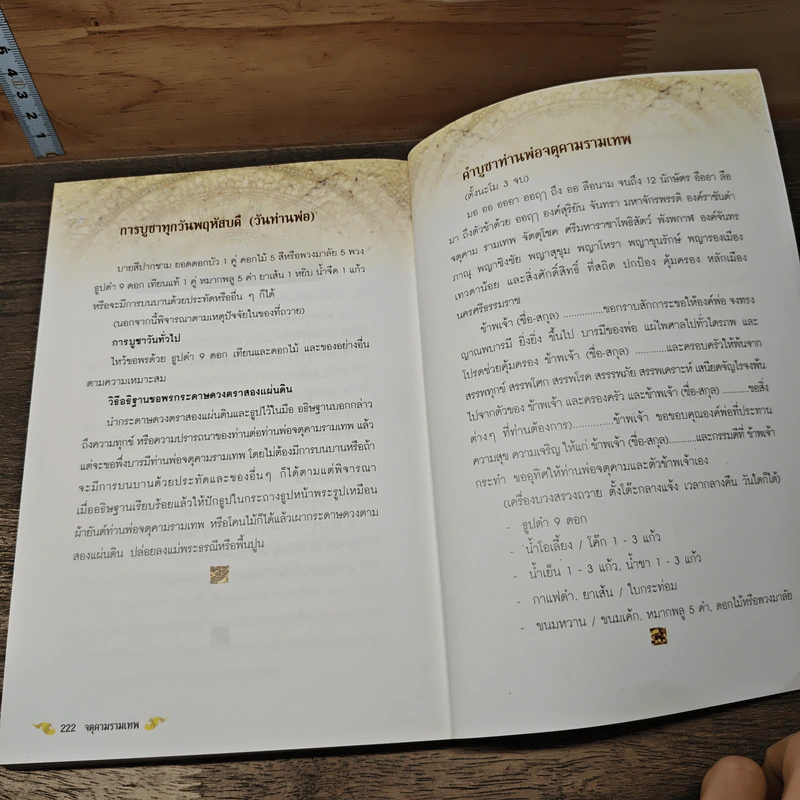 5 4 3 2 1
การบูชาทุกวันพฤหัสบดี (วันท่านพ่อ)
บายสีปากชาม ยอดดอกบัว 1 คู่ ดอกไม้ 5 สีหรือพวงมาลัย 5 พวง
ธูปดำ 9 ดอก เทียนแท้ 1 คู่ หมากพลู 5 คำ ยาเส้น 1 หยิบ น้ำจืด 1 แก้ว
หรือจะมีการบนบานด้วยประทัดหรืออื่น ๆ ก็ได้
(นอกจากนี้พิจารณาตามเหตุปัจจัยในของที่ถวาย)
การบูชาวันทั่วไป
ไหว้ขอพรด้วย ธูปดำ 9 ดอก เทียนและดอกไม้ และของอย่างอื่น
ตามความเหมาะสม
วิธีอธิฐานขอพรกระดาษดวงตราสองแผ่นดิน
นำกระดาษดวงตราสองแผ่นดินและธูปไว้ในมือ อธิษฐานบอกกล่าว
ถึงความทุกข์ หรือความปรารถนาของท่านต่อท่านพ่อจตุคามรามเทพ แล้ว
แต่จะขอพึ่งบารมีท่านพ่อจตุคามรามเทพ โดยไม่ต้องมีการบนบานหรือถ้า
จะมีการบนบานด้วยประทัดและของอื่นๆ ก็ได้ตามแต่พิจารณา
เมื่ออธิษฐานเรียบร้อยแล้วให้ปักธูปในกระถางธูปหน้าพระรูปเหมือน
ผ้ายันต์ท่านพ่อจตุคามรามเทพ หรือโคนไม้ก็ได้แล้วเผากระดาษดวงตาม
สองแผ่นดิน ปล่อยลงแม่พระธรณีหรือพื้นปูน
222 จตุคามรามเทพ
คำบูชาท่านพ่อจตุคามรามเทพ
(ตั้งนะโม 3 จบ)
มอ ออ ออออา ออฤๅ ถึง ออ ลือนาม จนถึง 12 นักษัตร อืออา ลือ
มา ถึงตัวข้าด้วย ออฤๅ องค์สุริยัน จันทรา มหาจักรพรรดิ องค์ราชันดำ
จตุคาม รามเทพ จัตตุโชค ศรีมหาราชาโพธิสัตว์ พังพกาฬ องค์จันทร
ภาณุ พญาชิงชัย พญาสุขุม พญาโหรา พญาขุนรักษ์ พญารองเมือง
เทวดาน้อย และสิ่งศักดิ์สิทธิ์ ที่สถิต ปกป้อง คุ้มครอง หลักเมือง
นครศรีธรรมราช
ข้าพเจ้า (ชื่อ-สกุล) ................ขอกราบสักการะขอให้องค์พ่อ จงทรง
ญาณพบารมี ยิ่งยิ่ง ขึ้นไป บารมีของพ่อ แผ่ไพศาลไปทั่วไตรภพ และ
โปรดช่วยคุ้มครอง ข้าพเจ้า (ชื่อ-สกุล) ...........และครอบครัวให้พ้นจาก
สรรพทุกข์ สรรพโศก สรรพโรค สรรรพภัย สรรพเคราะห์ เสนียดจัญไรจงพ้น
ไปจากตัวของ ข้าพเจ้า และครอบครัว และข้าพเจ้า (ชื่อ-สกุล) ..........ขอสิ่ง
ต่างๆ ที่ท่านต้องการ)..............ข้าพเจ้า ขอขอบคุณองค์พ่อที่ประทาน
ความสุข ความเจริญ ให้แก่ ข้าพเจ้า (ชื่อ-สกุล)..........และกรรมดีที่ ข้าพเจ้า
กระทำ ขออุทิศให้ท่านพ่อจตุคามและตัวข้าพเจ้าเอง
(เครื่องบวงสรวงถวาย ตั้งโต๊ะกลางแจ้ง เวลากลางคืน วันใดก็ได้)
- ธูปดำ 9 ดอก
- น้ำโอเลี้ยง / โค๊ก 1 - 3 แก้ว
- น้ำเย็น 1 - 3 แก้ว, น้ำชา 1 - 3 แก้ว
- กาแฟดำ, ยาเส้น / ใบกระท่อม
- ขนมหวาน / ขนมเค้ก, หมากพลู 5 คำ, ดอกไม้หรือพวงมาลัย